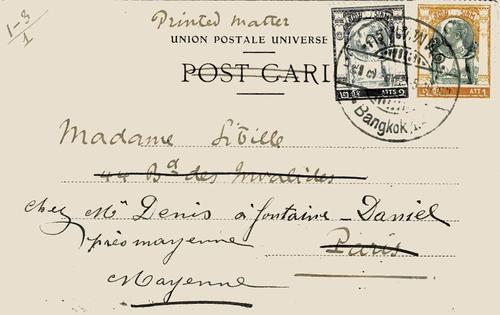 1-3
1
Printed matter
UNION POSTALE UNIVERSE
POST CARI
SIAM
SIAM
ATTS
ATT 1
Bangkok 1.
Madame Sibille
44 Bd des Invalides
chez Mr Denis à fontaine-Daniel
près mayenne
Paris
Mayenne